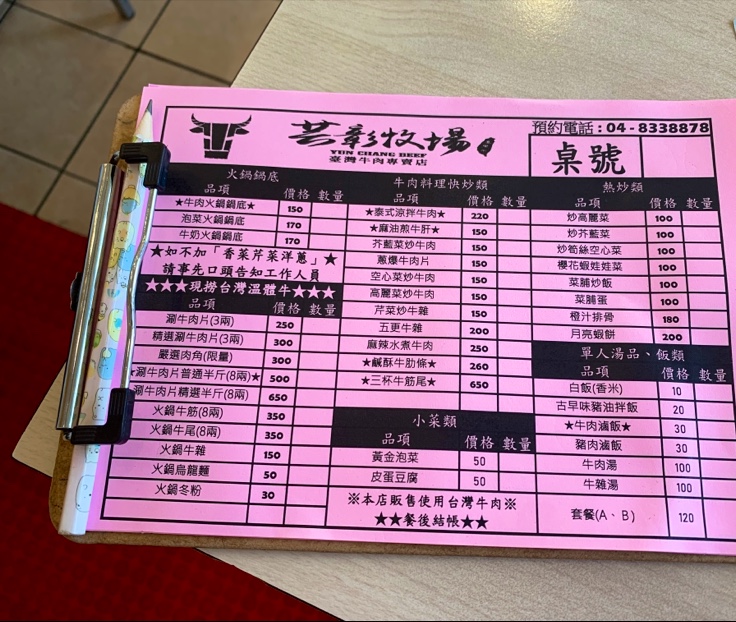 芸彰牧場
YUN CHANG BEEF
臺灣牛肉專賣店
預約電話：04-8338878
桌號
火鍋鍋底
品項 價格 數量
★牛肉火鍋鍋底★ 150
泡菜火鍋鍋底 170
牛奶火鍋鍋底 170
★如不加「香菜芹菜洋蔥」★
請事先口頭告知工作人員
★★★現撈台灣溫體牛★★★
品項 價格 數量
涮牛肉片(3兩) 250
精選涮牛肉片(3兩) 300
嚴選肉角(限量) 300
★涮牛肉片普通半斤(8兩)★ 500
涮牛肉片精選半斤(8兩) 650
火鍋牛筋(8兩) 350
火鍋牛尾(8兩) 350
火鍋牛雜 150
火鍋烏龍麵 50
火鍋冬粉 30
牛肉料理快炒類
品項 價格 數量
★泰式涼拌牛肉★ 220
★麻油煎牛肝★ 150
芥藍菜炒牛肉 150
蔥爆牛肉片 150
空心菜炒牛肉 150
高麗菜炒牛肉 150
芹菜炒牛雜 150
五更牛雜 200
麻辣水煮牛肉 250
★鹹酥牛肋條★ 260
★三杯牛筋尾★ 650
小菜類
品項 價格 數量
黃金泡菜 50
皮蛋豆腐 50
※本店販售使用台灣牛肉※
★★餐後結帳★★
熱炒類
品項 價格 數量
炒高麗菜 100
炒芥藍菜 100
炒筍絲空心菜 100
櫻花蝦娃娃菜 100
菜脯炒飯 100
菜脯蛋 100
橙汁排骨 180
月亮蝦餅 200
單人湯品、飯類
品項 價格 數量
白飯(香米) 10
古早味豬油拌飯 20
★牛肉滷飯★ 30
豬肉滷飯 30
牛肉湯 100
牛雜湯 100
套餐(A、B) 120